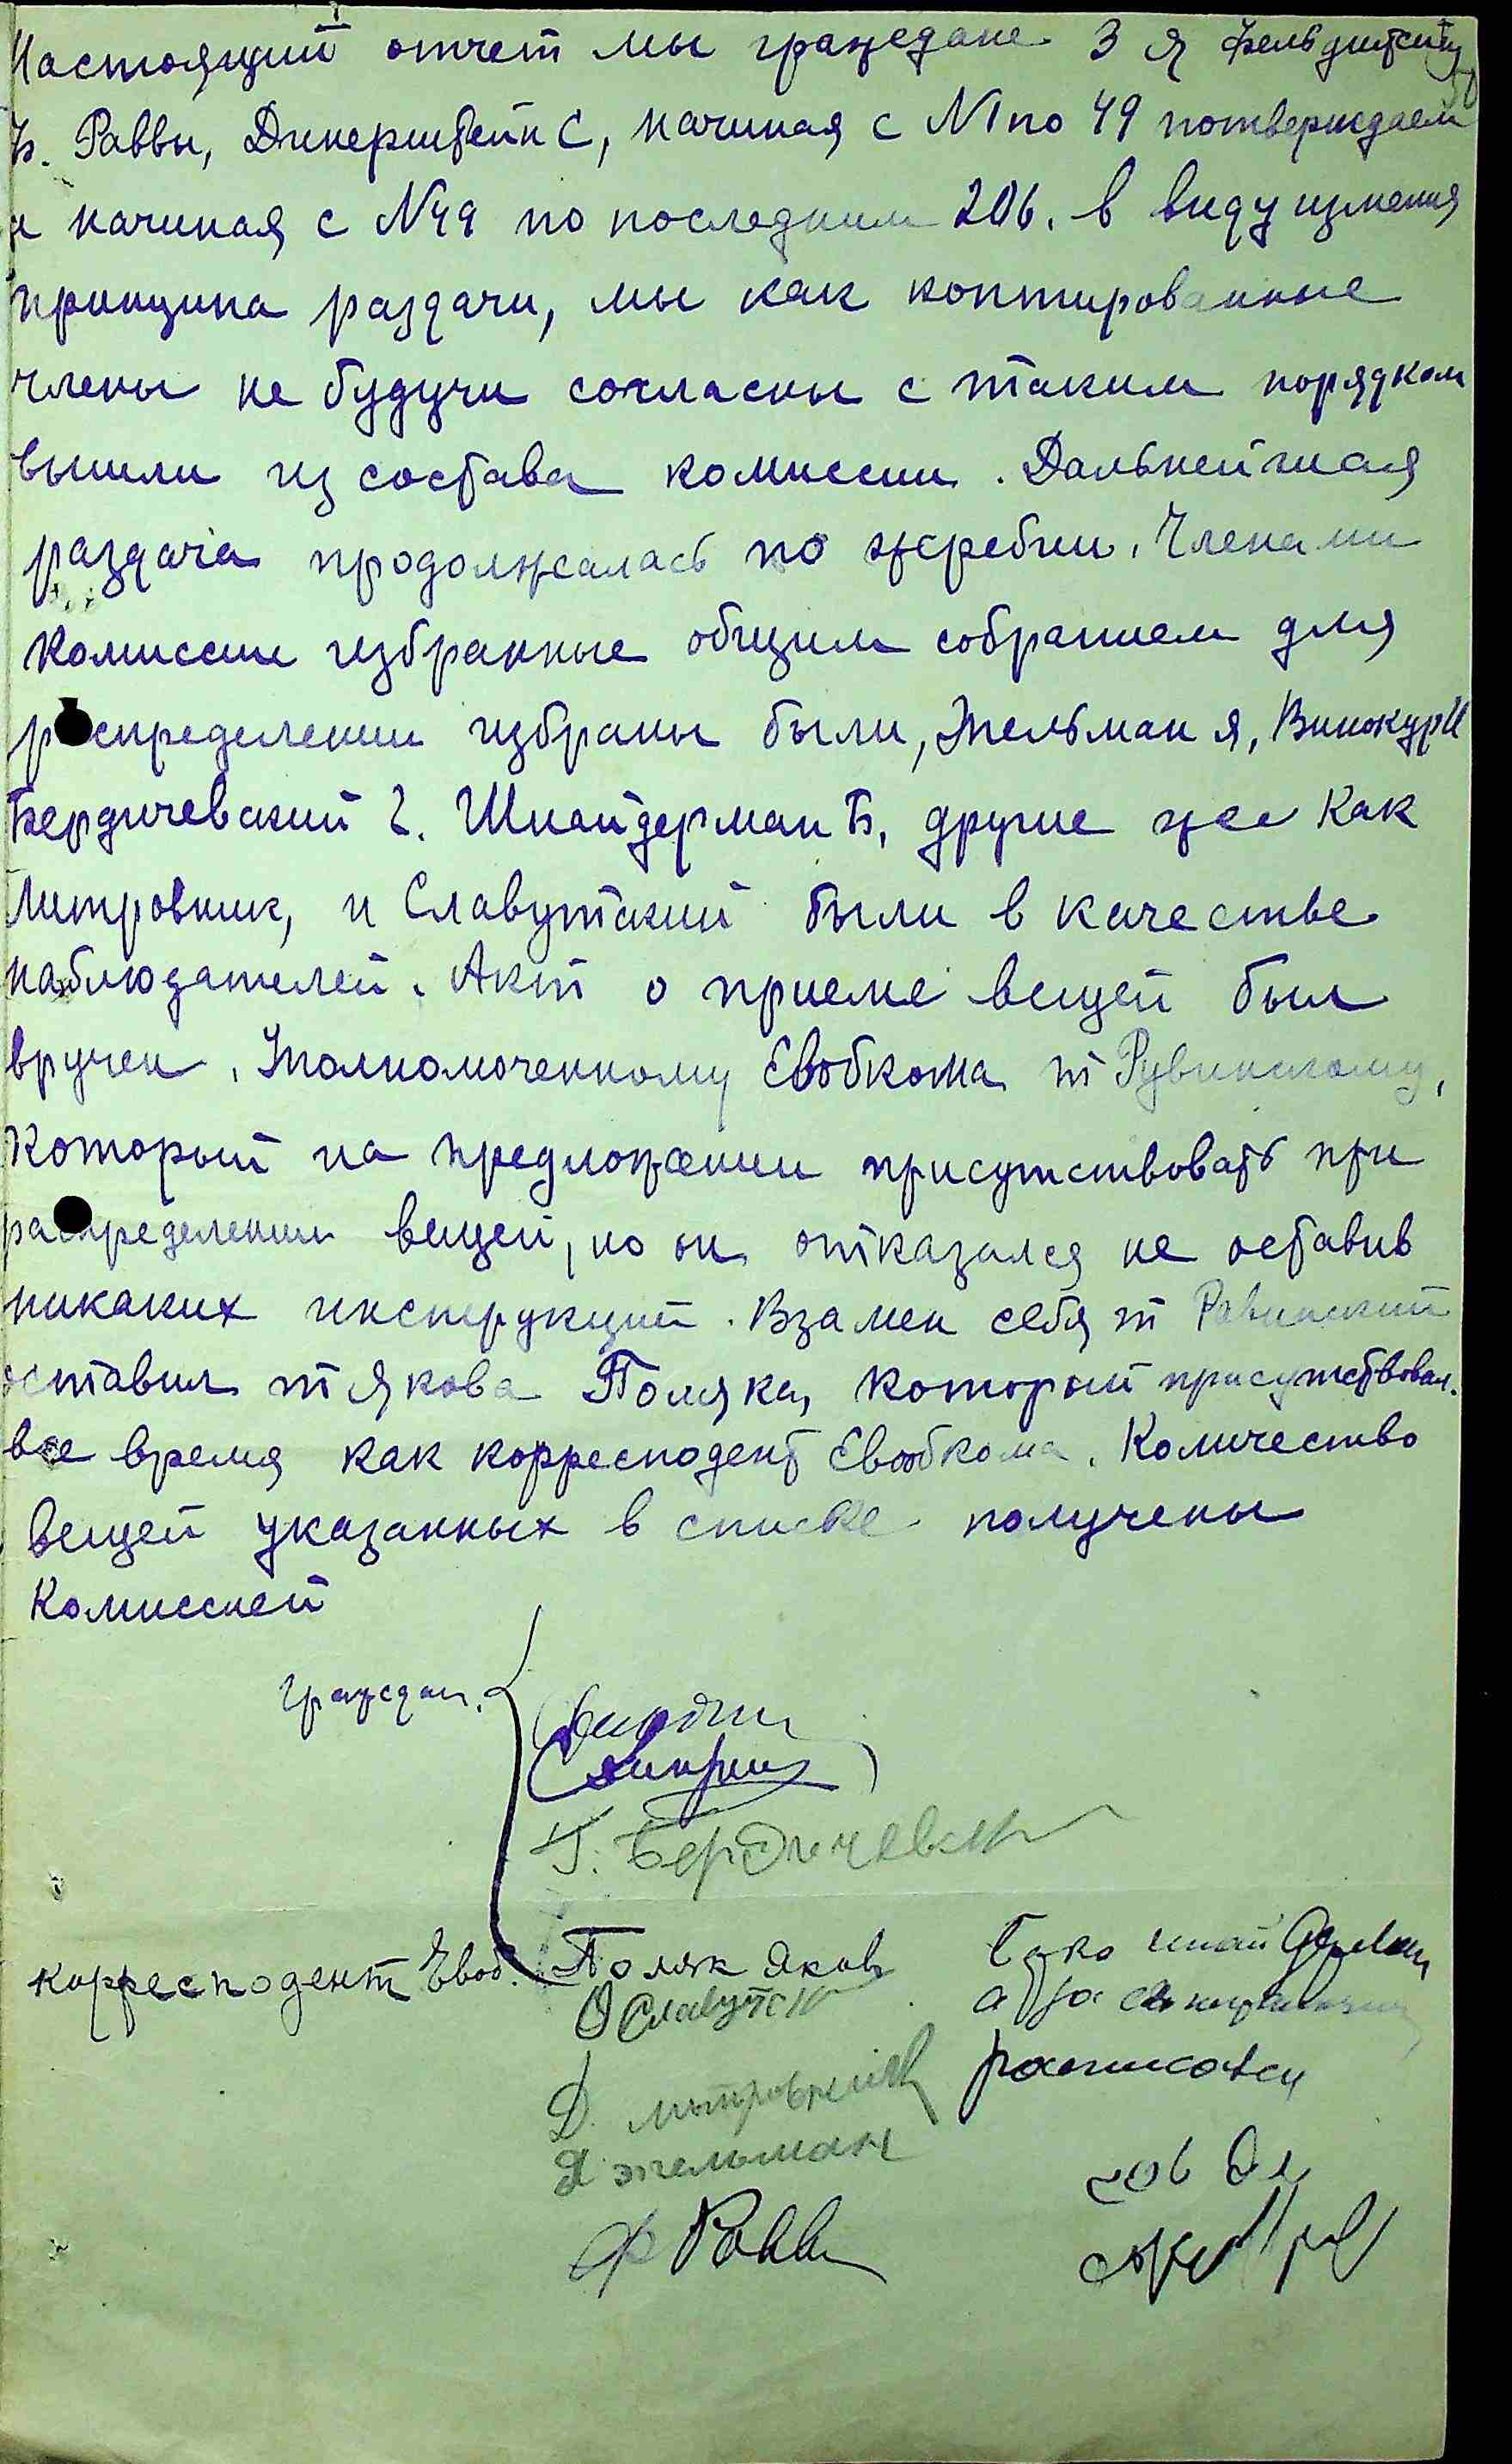 Настоящий отчет мы граждане 3 я
Б. Раввы, Динерштейн С, начиная с №1 по 49 потверждаем
и начиная с №49 по последним 206. в виду измения
принципа раздачи, мы как коптированные
члены не будучи согласны с таким порядком
вышли из состава комиссии. Дальнейшая
раздача продолжалась по жребии. Членами
Комиссии избранные общим собранием для
распределении избраны были, Жельман Я, Винокур И
Бердичевский Г. Шнайдерман Б, другие же как
Митровник, и Славутский были в качестве
наблюдателей. Акт о приеме вещей был
вручен, Уполномоченному Евобкома т Рувинскому,
Который на предложении присутствовать при
распределении вещей, но он отказался не оставив
никаких инструкций. Взамен себя т Равинский
оставил т Якова Поляка, который присутствовал.
все время как корресподент Евобкома. Количество
вещей указанных в списке получены
Комиссией
Граждан.
Г. Бердичевски
Корресподент Евоб. Поляк Яков
О Славутск
расписовси
Д. Митровник
Я жельман
206 Эк
Ф Равви